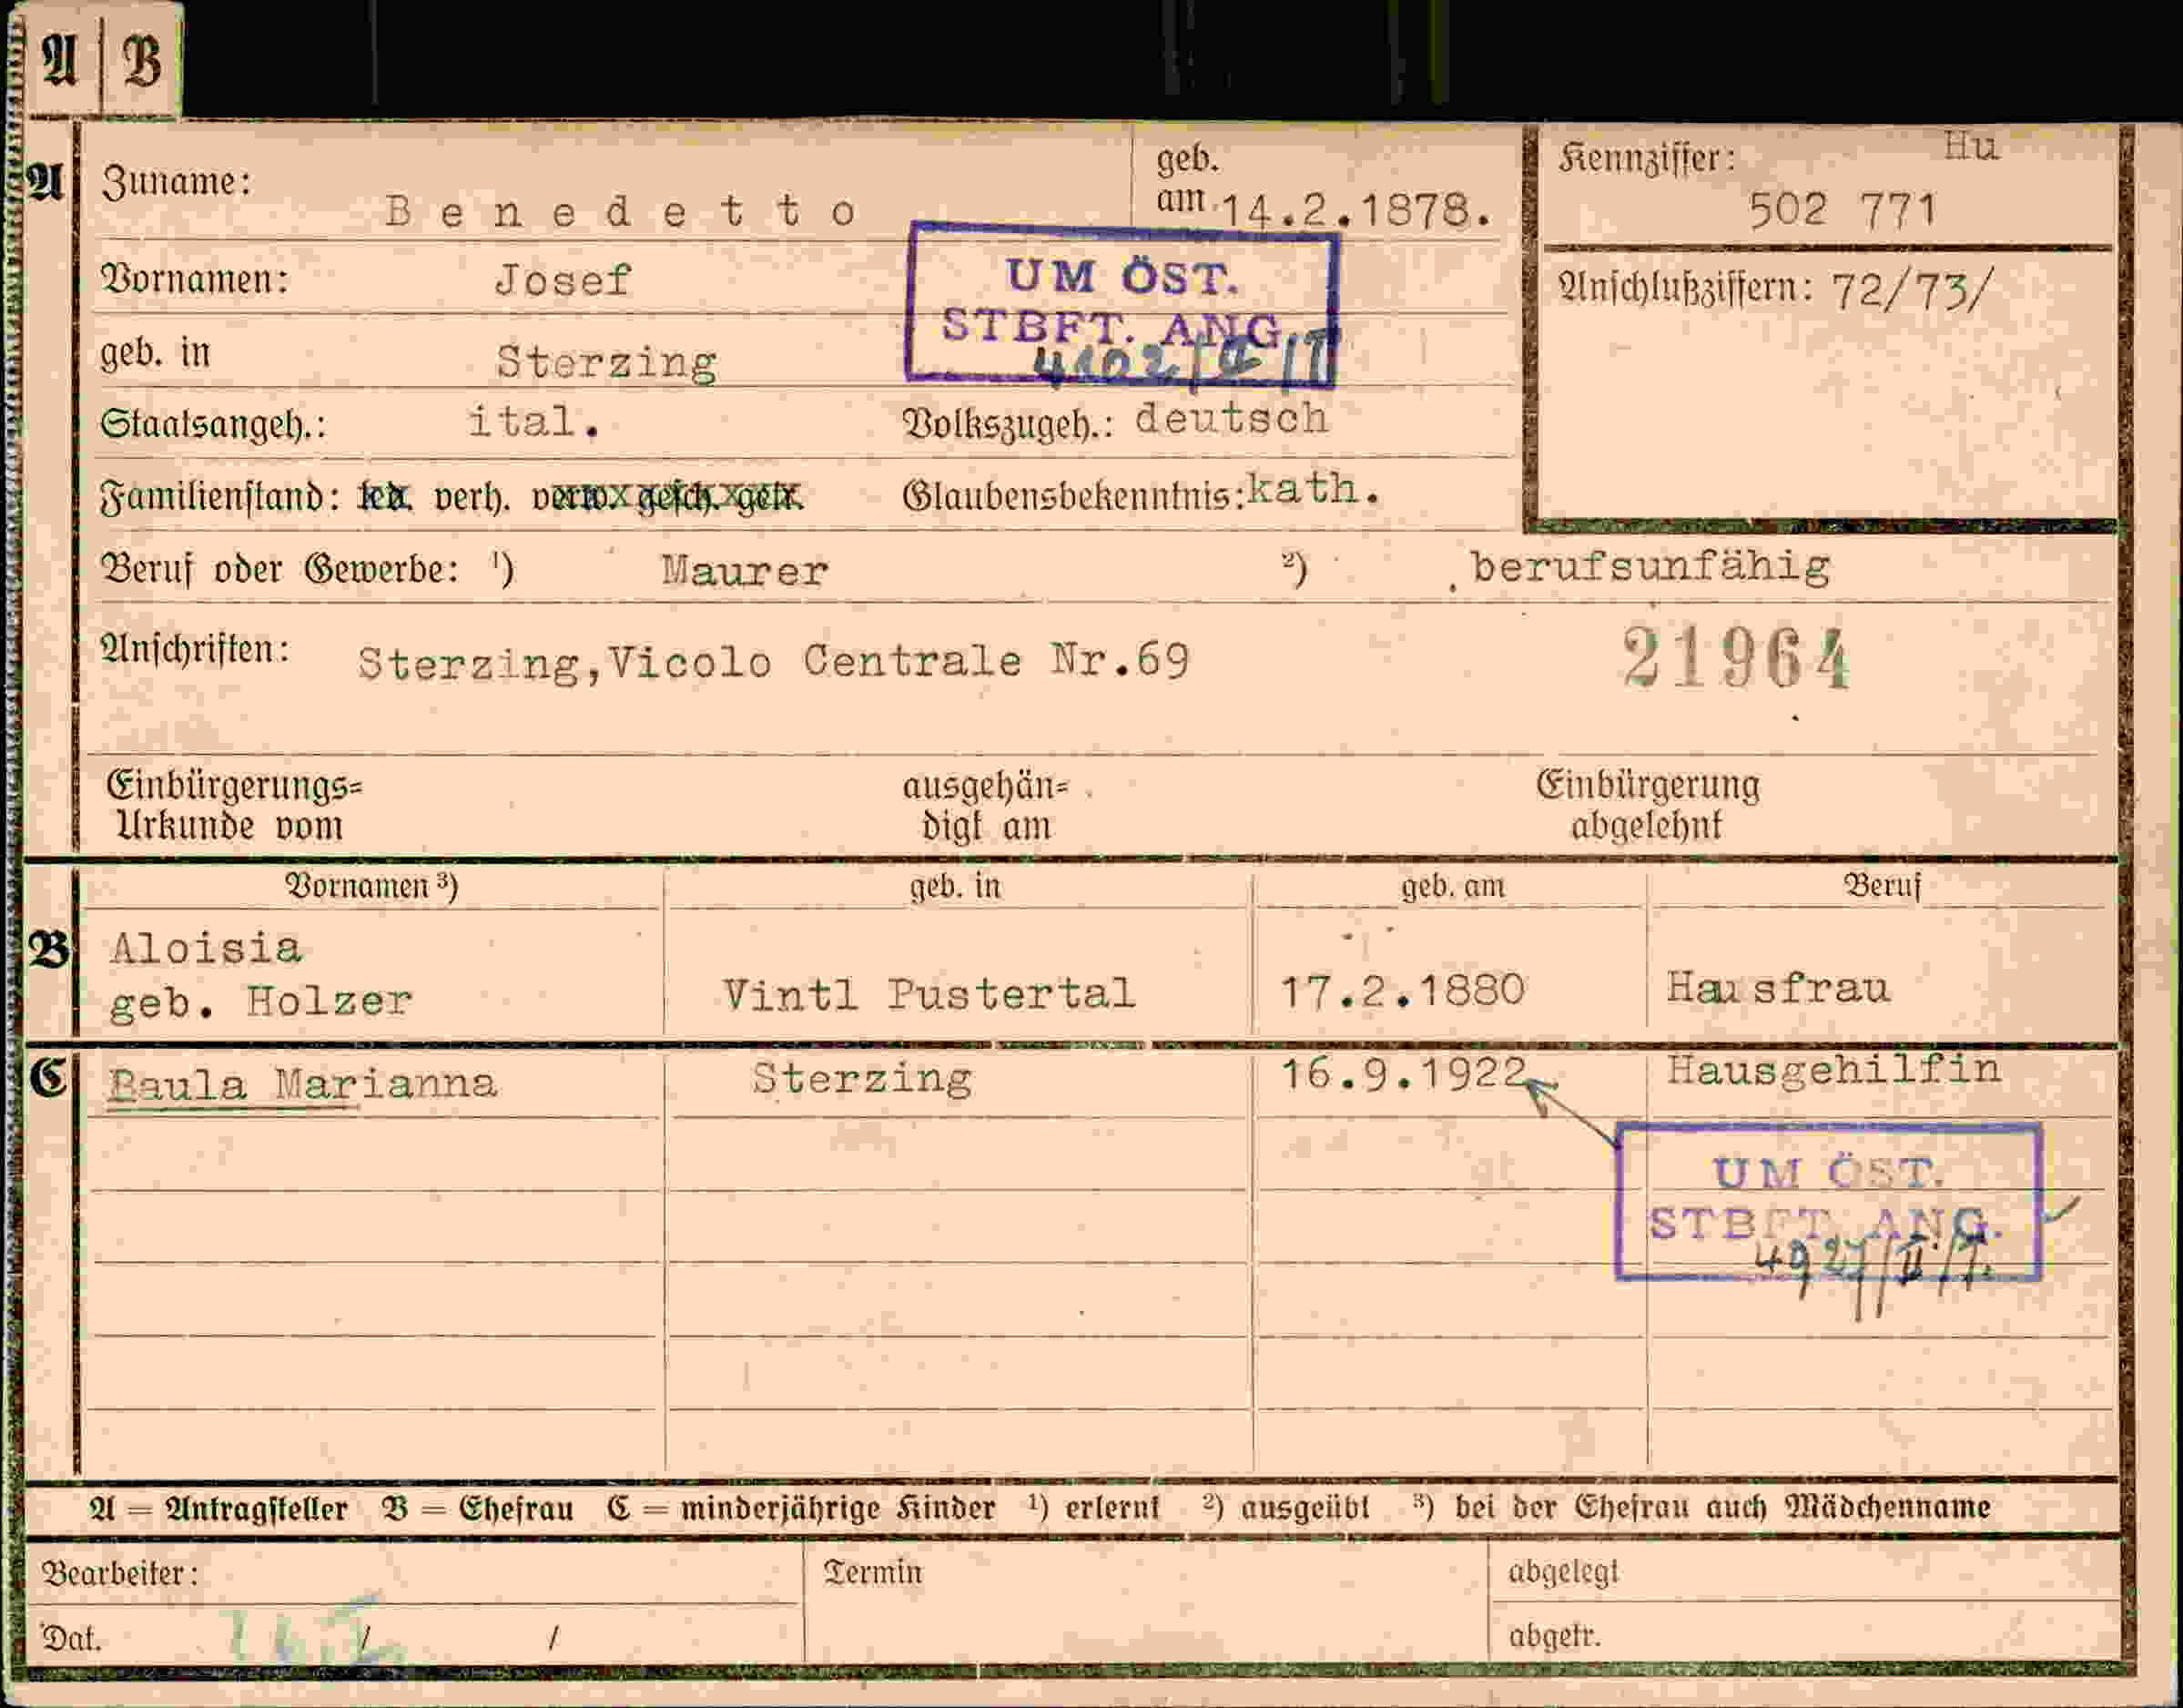 A | B
A
Zuname: Benedetto geb. am 14.2.1878.
Kennziffer: Hu
502 771
Vornamen: Josef
UM ÖST.
STBFT. ANG.
Anschlußziffern: 72/73/
geb. in Sterzing
Staatsangeh.: ital. Volkszugeh.: deutsch
Familienstand: led. verh. verw. gesch. getr. Glaubensbekenntnis: kath.
Beruf oder Gewerbe: ¹) Maurer ²) berufsunfähig
Anschriften: Sterzing, Vicolo Centrale Nr.69
21964
Einbürgerungs= Urkunde vom
ausgehän= digt am
Einbürgerung abgelehnt
Vornamen ³) geb. in geb. am Beruf
B Aloisia
geb. Holzer Vintl Pustertal 17.2.1880 Hausfrau
C Paula Marianna Sterzing 16.9.1922 Hausgehilfin
UM ÖST.
STBFT. ANG.
A = Antragsteller B = Ehefrau C = minderjährige Kinder ¹) erlernt ²) ausgeübt ³) bei der Ehefrau auch Mädchenname
Bearbeiter: Termin abgelegt
Dat. / / abgetr.